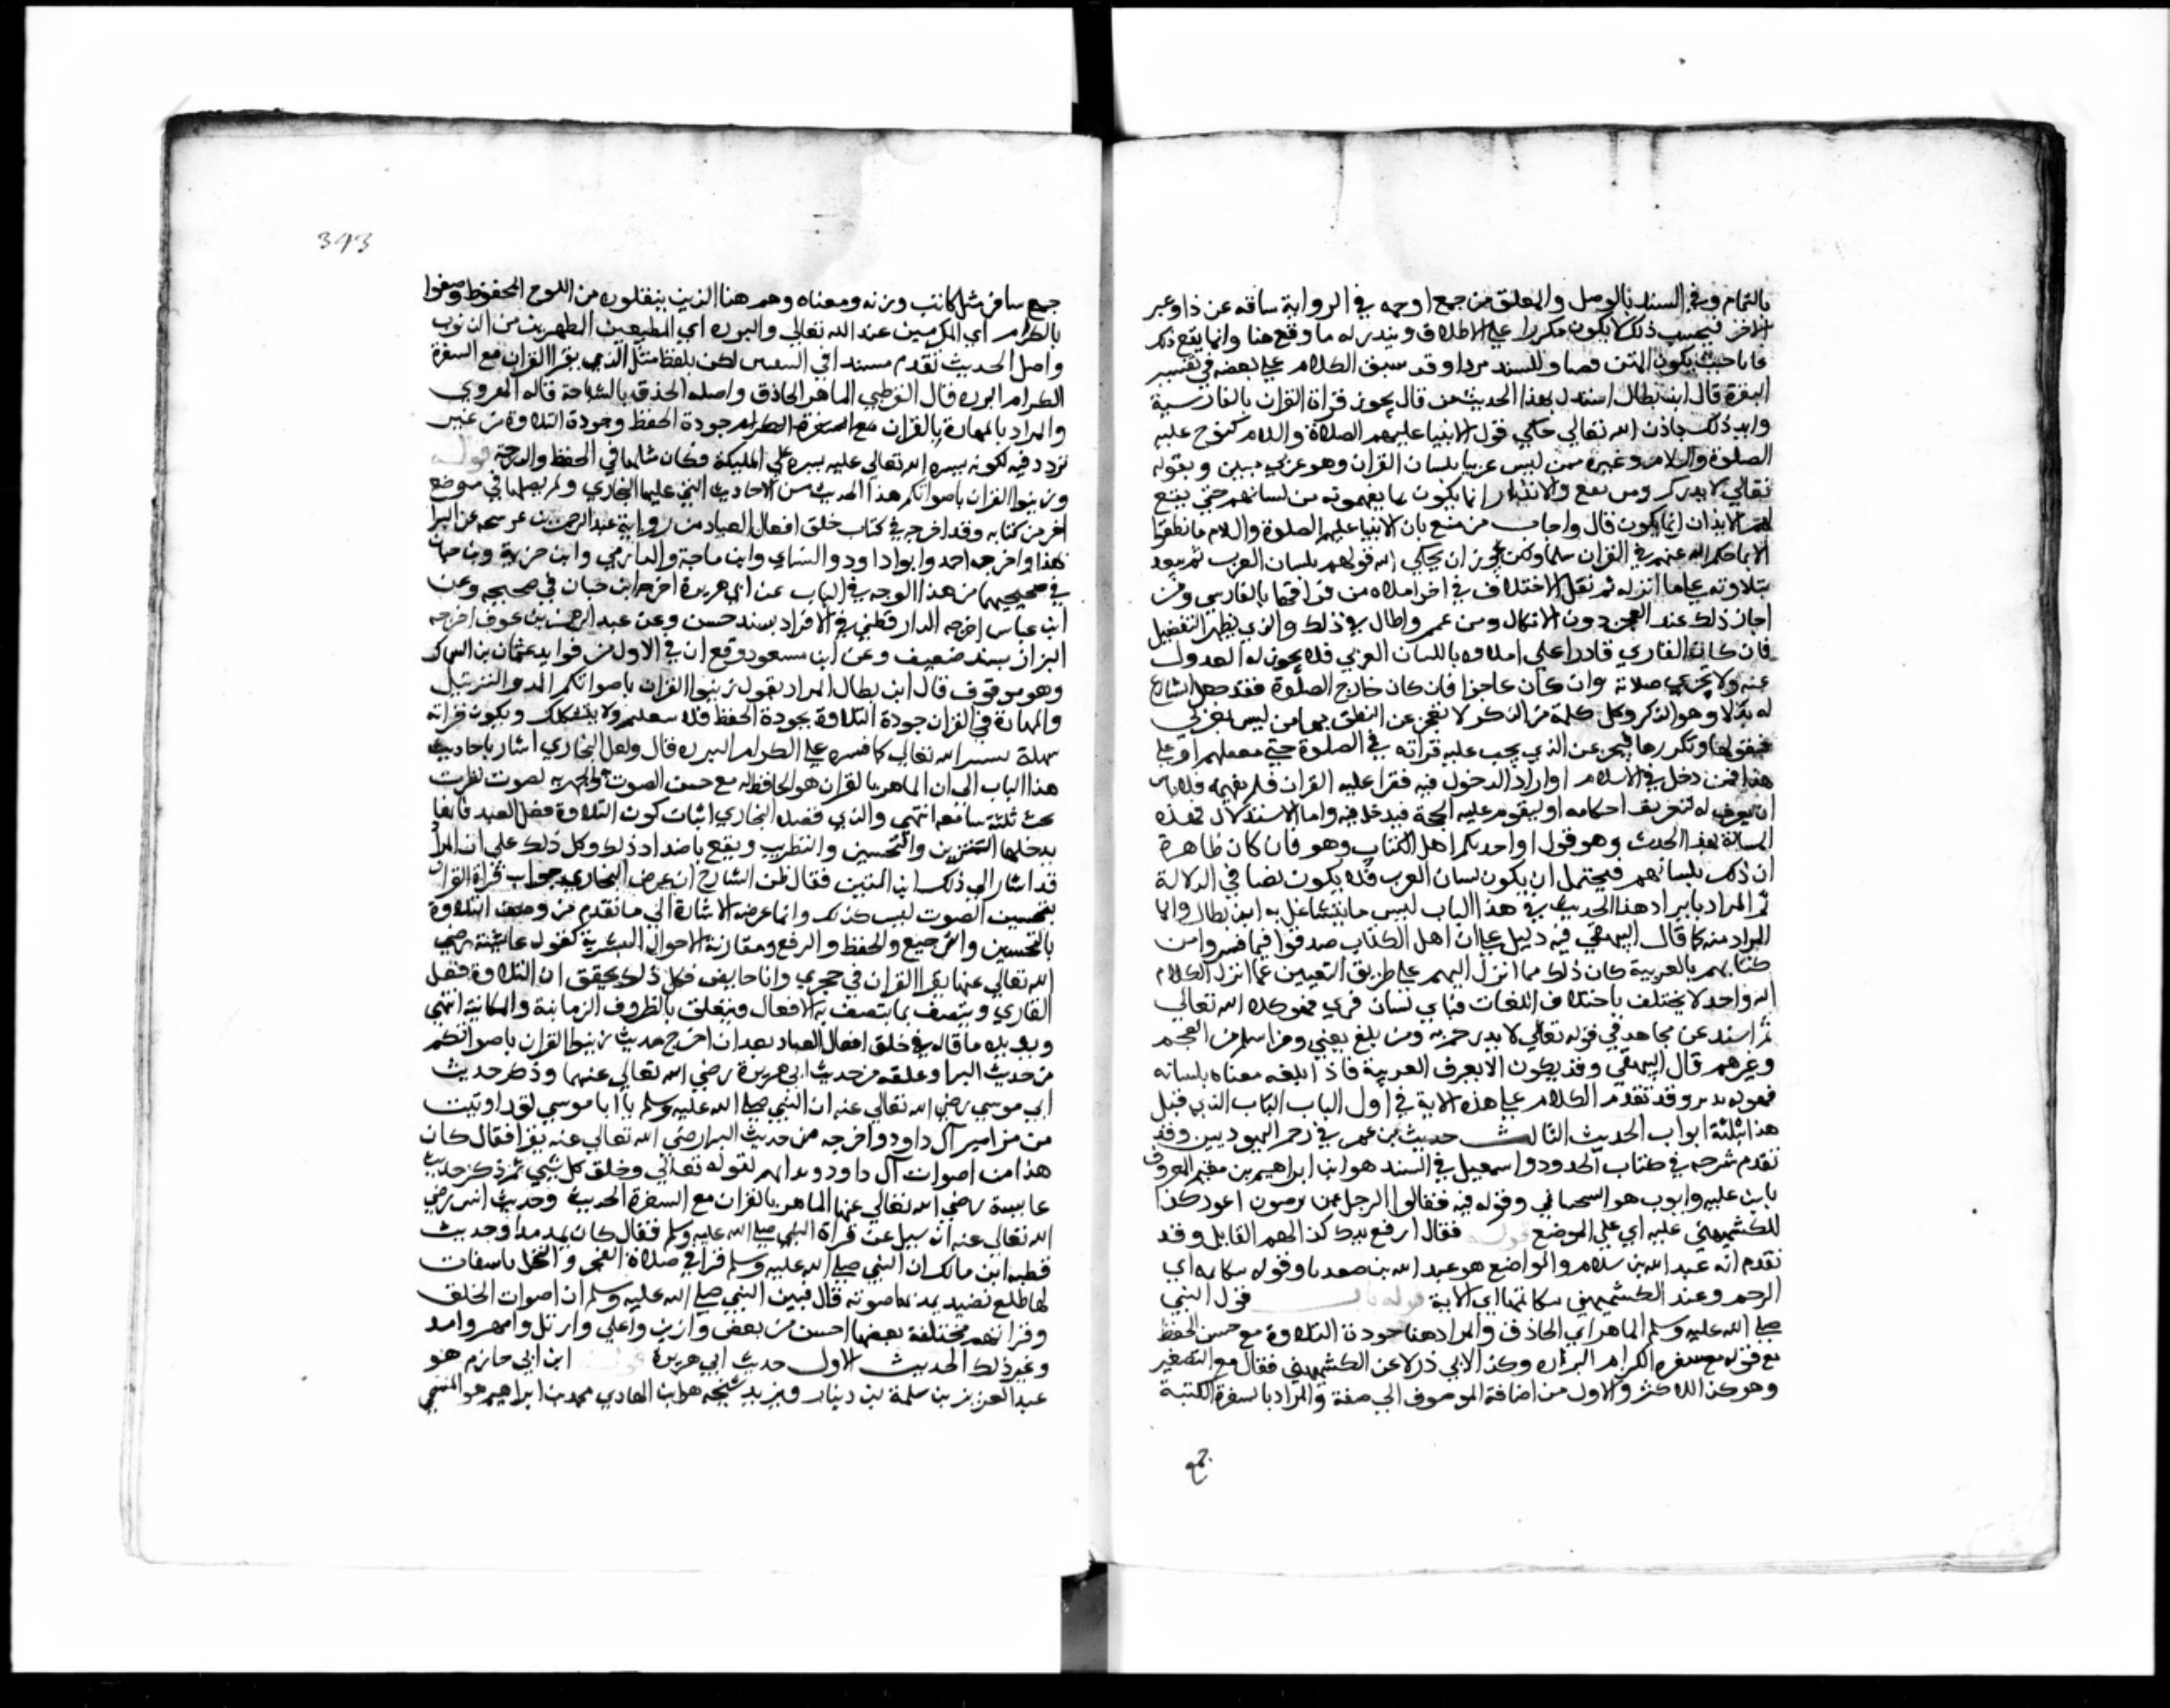 بالتمام وفي السند بالوصل والتعلق من جمع اوجه في الرواية ساقه عن ذا وعبر
الاخر فبحسب ذلك لا يكون مكررا على الاطلاق ويندر له ما وقع هنا وانما يقع ذلك
غالبا حيث يكون المتن قصيرا والسند فردا وقد سبق الكلام على بعضه في تفسير
البقرة قال ابن بطال استدل بهذا الحديث من قال يجوز قراة القران بالفارسية
وايد ذلك بان الله تعالى حكى قول الانبيا عليهم الصلاة والسلام كنوح عليه
الصلوة والسلام وغيره ممن ليس عربيا بلسان القران وهو عربي مبين وبقوله
تعالى لانذركم ومن بلغ والانذار انما يكون بما يفهمونه من لسانهم حتى يقع
لهم الانذار انما يكون قال واجاب من منع بان الانبيا عليهم الصلوة والسلام ما نطقوا
الا بما حكى الله عنهم في القران سلمنا ولكن يجوز ان يحكي الله قولهم بلسان العرب ثم
بتلاوته على ما انزله ثم نقل الاختلاف في اجزا صلاة من قرا فيها بالفارسي ومن
اجاز ذلك عند العجز دون الامكان ومن عمم واطال في ذلك والذي يظهر التفضيل
فان كان القاري قادرا على تلاوه باللسان العربي فلا يجوز له العدول
عنه ولا تجزي صلاته وان كان عاجزا فان كان خارج الصلوة فقد جعل الشارع
له بدلا وهو الذكر وكل كلمة من الذكر لا تعجز عن النطق بها من ليس بعربي
فيقولها ويكررها فيجزي عن الذي يجب عليه قراته في الصلوة حتى يتعلم وعلى
هذا فمن دخل في الاسلام او اراد الدخول فيه فقرا عليه القران فلم يفهمه فلا باس
ان يعرب له لتعريف احكامه او ليقوم عليه الحجة فيدخل فيه واما الاستدلال لهذه
المسالة بهذا الحديث وهو قوله اذا حدثكم اهل الكتاب وهو فان كان ظاهره
ان ذلك بلسانهم فيحتمل ان يكون بلسان العرب فلا يكون نصا في الدلالة
ثم المراد بايراد هذا الحديث في هذا الباب ليس ما تشاغل به ابن بطال وانما
المراد منه كما قال البيهقي فيه دليل على ان اهل الكتاب صدقوا فيما فسروا من
كتابهم بالعربية كان ذلك مما انزل اليهم على طريق التعبير عما انزل الكلام
الله واحد لا يختلف باختلاف اللغات فباي لسان قري فهو كلام الله تعالى
ثم اسند عن مجاهد في قوله تعالى لانذركم به ومن بلغ يعني ومن اسلم من العجم
وغيرهم قال البيهقي وقد يكون لا يعرف العربية فاذا بلغه معناه بلسانه
فهو له نذير وقد تقدم الكلام على هذه الاية في اول الباب الذي قبل
هذا بثلثة ابواب الحديث الثالث حديث بن عمر في رجم اليهوديين وقد
تقدم شرحه في كتاب الحدود واسمعيل في السند هو ابن ابراهيم بن مقسم المعروف
بابن علية وايوب هو السختياني وقوله فيه فقالوا الرجل ممن يرضون اعور كذا
للكشميهني عليه اي على الموضع قوله فقال ارفع يدك كذا ابهم القايل وقد
تقدم انه عبد الله بن سلام والواضع هو عبد الله بن صوريا وقوله يتكاتمه اي
الرجم وعند الكشميهني يتكاتمانها اي الاية قوله باب قول النبي
صلى الله عليه وسلم الماهر اي الحاذق والمراد هنا جودة التلاوة مع حسن الحفظ
مع قوله مع سفرة الكرام البررة وكذا لابي ذر الا عن الكشميهني فقال مع السفرة
وهو كذا للاكثر والاول من اضافة الموصوف الى صفته والمراد بالسفرة الكتبة
جمع
343
جمع سافر مثل كاتب وزنه ومعناه وهم هنا الذين ينقلون من اللوح المحفوظ وصفوا
بالكرام اي المكرمين عند الله تعالى والبررة اي المطيعين المطهرين من الذنوب
واصل الحديث تقدم مسندا في التفسير لكن بلفظ مثل الذي يقرا القران مع السفرة
الكرام البررة قال القرطبي الماهر الحاذق واصله الحذق بالسباحة قاله الهروي
والمراد بالمهارة بالقران جودة الحفظ وجودة التلاوة من غير
تردد فيه لكونه يسره الله تعالى عليه يسره على المليكة فكان مثلها في الحفظ والدرجة قوله
وزينوا القران باصواتكم هذا الحديث من الاحاديث التي علقها البخاري ولم يصلها في موضع
اخر من كتابه وقد اخرجه في كتاب خلق افعال العباد من رواية عبد الرحمن بن عوسجة عن البرا
بهذا واخرجه احمد وابو داود والنساي وابن ماجة والدارمي وابن خزيمة وبن حبان
في صحيحيهما من هذا الوجه وفي الباب عن ابي هريرة اخرجه ابن حبان في صحيحه وعن
ابن عباس اخرجه الدارقطني في الافراد بسند حسن وعن عبد الرحمن بن عوف اخرجه
البزار بسند ضعيف وعن ابن مسعود وقع لنا في الاول من فوايد عثمان بن السماك
وهو موقوف قال ابن بطال المراد بقوله زينوا القران باصواتكم المد والترتيل
والمهارة في القران جودة التلاوة بجودة الحفظ فلا يتلعثم ولا يتشكك ويكون قراته
سهلة بتيسير الله تعالى كما يسره على الكرام البررة قال ولعل البخاري اشار باحاديث
هذا الباب الى ان الماهر بالقران هو الحافظ له مع حسن الصوت والجهر به بصوت مطرب
بحيث يلتذ سامعه انتهى والذي قصده البخاري اثبات كون التلاوة فعل العبد فانها
يدخلها التزيين والتحسين والتطريب ويقع باضداد ذلك وكل ذلك على ان المراد
قد اشار الى ذلك ابن المنير فقال ظن الشارح ان غرض البخاري جواز قراة القران
بتحسين الصوت ليس كذلك وانما غرضه الاشارة الى ما تقدم من وصف التلاوة
بالتحسين والترجيع والخفض والرفع ومقارنة الاحوال البشرية كقول عايشة رضي
الله تعالى عنها يقرا القران في حجري وانا حايض فكل ذلك يحقق ان التلاوة فعل
القاري وتتصف بما تتصف به الافعال ويتعلق بالظروف الزمانية والمكانية انتهى
ويويده ما قاله في خلق افعال العباد بعد ان اخرج حديث زينوا القران باصواتكم
من حديث البرا وعلقه من حديث ابي هريرة رضي الله تعالى عنهما وذكر حديث
ابي موسى رضي الله تعالى عنه ان النبي صلى الله عليه وسلم يا ابا موسى لقد اوتيت
من مزامير آل داود واخرجه من حديث البرا رضي الله تعالى عنه يقرا فقال كان
هذا من اصوات آل داود لقوله تعالى وخلق كل شي ثم ذكر حديث
عايشة رضي الله تعالى عنها الماهر بالقران مع السفرة الحديث وحديث انس رضي
الله تعالى عنه انه سيل عن قراة النبي صلى الله عليه وسلم فقال كان يمد مدا وحديث
قطبة ابن مالك ان النبي صلى الله عليه وسلم قرا في صلاة الفجر والنخل باسقات
لها طلع نضيد يمد بها صوته قال فبين النبي صلى الله عليه وسلم ان اصوات الخلق
وقراتهم مختلفة بعضها احسن من بعض وازين واحلى وارتل وامهر وامد
وغير ذلك الحديث الاول حديث ابي هريرة قوله ابن ابي حازم هو
عبد العزيز بن سلمة بن دينار ويزيد شيخه هو ابن الهادي محمد بن ابراهيم هو التيمي